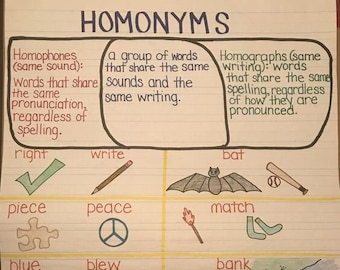 HOMONYMS
Homophones
(same sound):
Words that share
the same
pronunciation,
regardless of
spelling.
a group of words
that share the same
sounds and the
same writing.
Homographs (same
writing): words
that share the same
spelling, regardless
of how they are
pronounced.
right write bat
piece peace match
blue blew bank